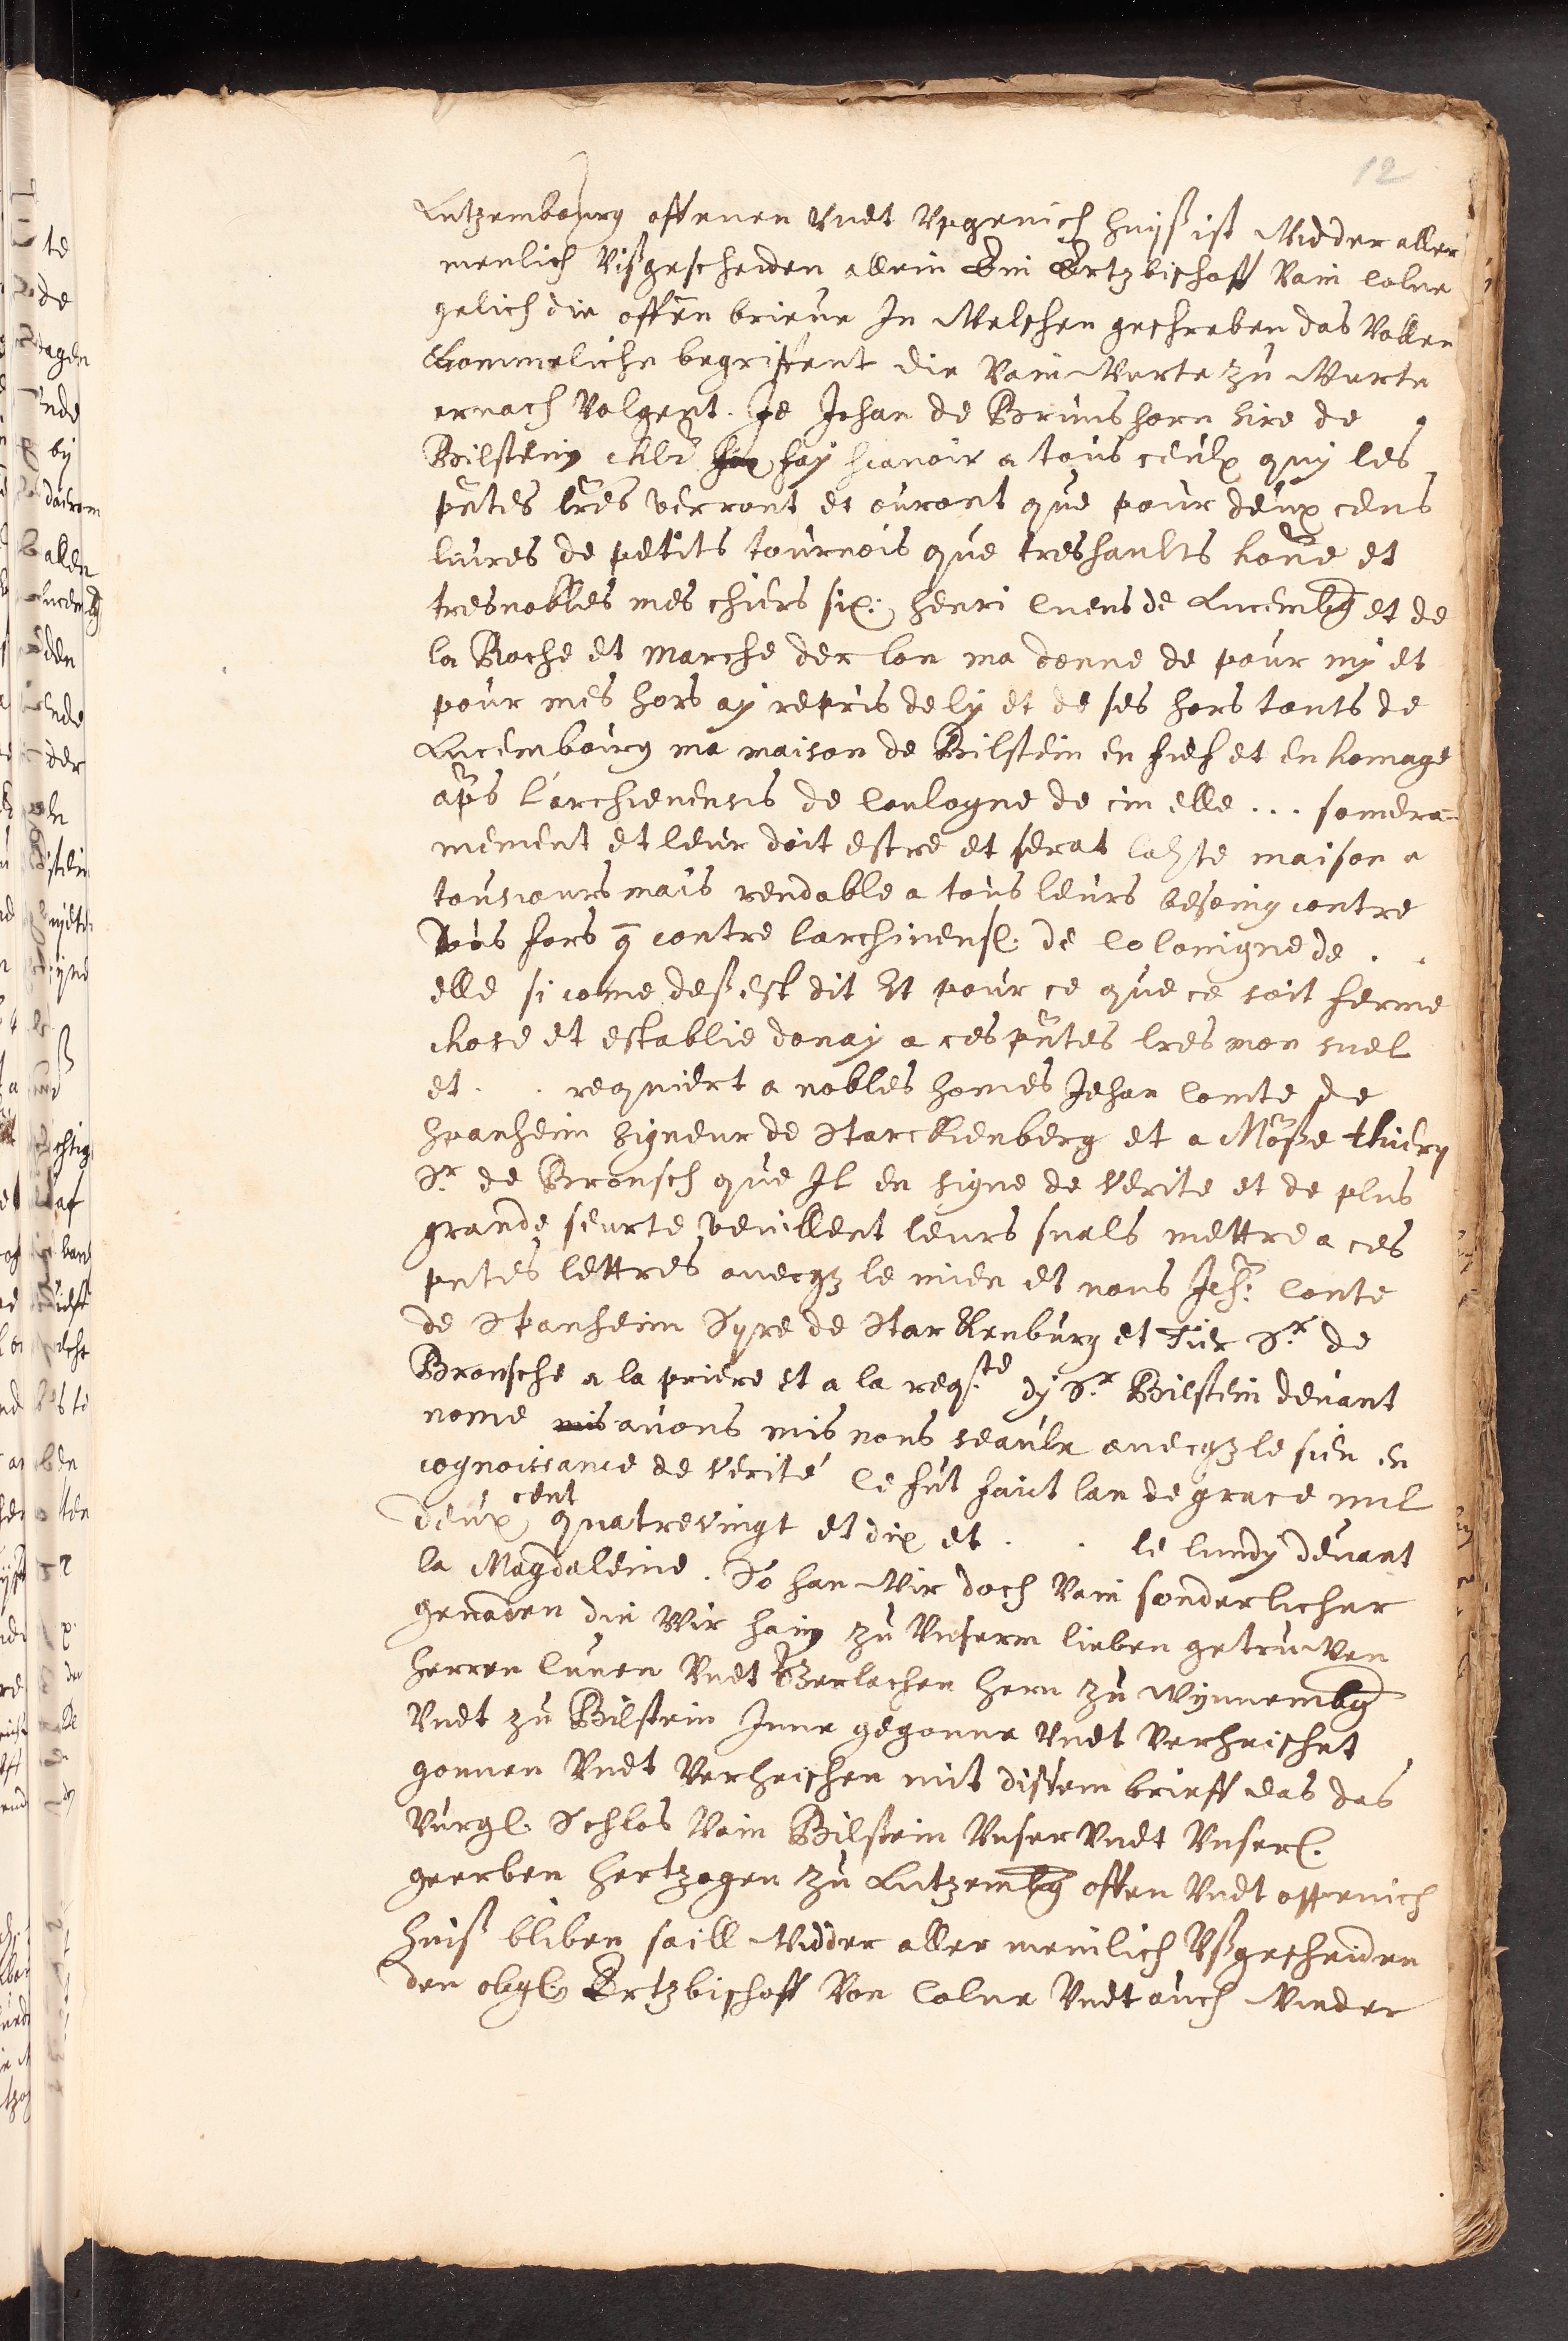 12
Lutzembourg offenen Vndt Vpgenich huiß ist Widder aller
menlich Vißgescheiden allein Ein Ertzbischoff Vain Colne
gelich die offen brieue In Welschen geschreben das Vollen
Kommeliche begriffent die Vain Worte zu Worte
ernach Volgent. Je Jehan de Brunshorn sire de
Bilsteing chlr fay scavoir a tous ceulx quy les
pntes lres verront et ouront que pour deux cens
liures de petits tournois que treshaults home et
tresnobles mes chiers six: Henri Cuens de Lucembg et de
la Roche et Marche der lon ma donne de pour my et
pour mes hors ay repris de ly et de ses hors tonts de
Lucembourg ma maison de Bilstein en fief et en homage
aps l'archieuensis de Coulogne de cin elle ... somera=
mement et leur doit estre et serat lahte maison a
tousiours mais rendable a tous leurs besoing contre
Tous fors q contre larchiuensl. de Coloingne de . .
elle si come deß est dit Et pour ce que ce soit ferme
chose et establie donay a ces pntes lres mon suel
et . . requiert a nobles homes Jehan Comte de
Spanheim Signeur de Starckenberg et a Moße thiery
Sr de Bronsch que Il en signe de verite et de plus
grande seurte veuillent leurs suals mettre a ces
pntes lettres auecqz le mien et nous Jeh: Conte
de Spanheim Syre de Starkenburg et Tier Sr de
Bronsche a la priere et a la reqste dy Sr Bilstein deuant
nome mis auons mis nous seaulx auecqz le sien en
cognoissance de verité le fut faict lan de grace mil
deux cent quatrevingt et dix et . . le lundy deuant
la Magdaleine. So han Wir doch Vain sonderlicher
genaden die Wir hain zu Vnserm lieben getruwen
Herren Cunen Vndt Gerlachen Hern zu Wynnembg
Vndt zu Bilstein Inne gegonne Vndt Verheischet
gonnen Vndt Verheischen mit dissem brieff das das
Vurgl. Schlos Vain Bilstein Vnser Vndt Vnserl.
geerben Hertzogen zu Lutzembg offen Vndt offenich
huiß bliben saill Widder aller menlich Vßgescheiden
den obgl. Ertzbischoff Von Colne Vndt auch Wieder